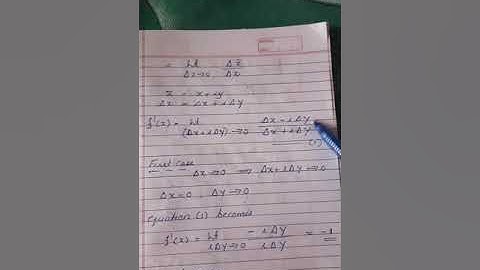 = Lt Δz̄
Δz→0 Δz
z = x + iy
Δz = Δx + iΔy
f'(z) = Lt Δx - iΔy
(Δx + iΔy) → 0 Δx + iΔy
(1)
First case
Δz → 0 ⟹ Δx + iΔy → 0
Δx = 0, Δy → 0
equation (1) becomes
f'(z) = Lt - iΔy = -1
iΔy → 0 iΔy